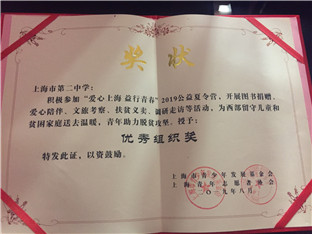 奖状
上海市第二中学：
积极参加“爱心上海 益行青春”2019公益夏令营，开展图书捐赠、
爱心陪伴、文旅考察、扶贫义卖、调研走访等活动，为西部留守儿童和
贫困家庭送去温暖，青年助力脱贫攻坚。授予：
优秀组织奖
特发此证，以资鼓励。
上海市青少年发展基金会
上海青年志愿者协会
二〇一九年八月